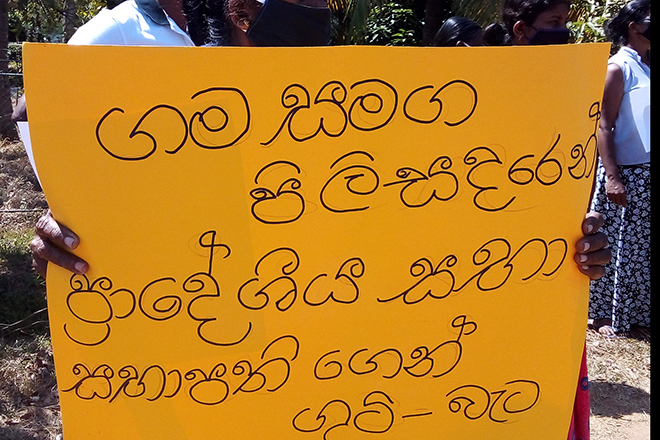 ගම සමග
පිලිසදිරෙන්
ප්‍රාදේශීය සභා
සභාපති ගෙන්
ගුටි - බැට